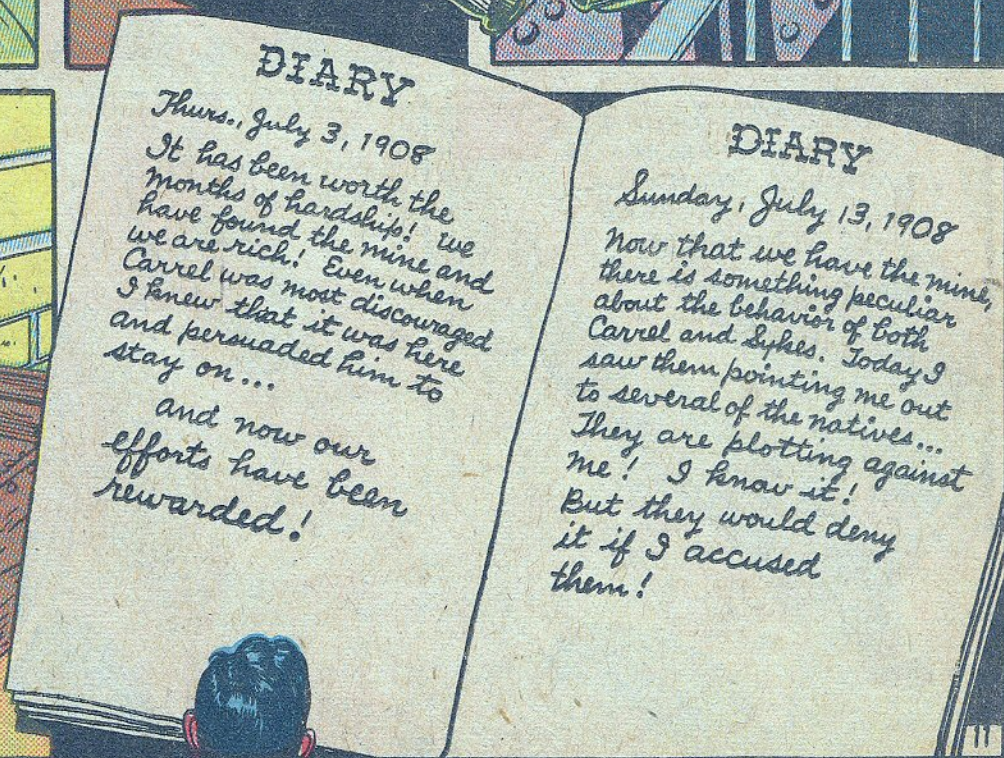 DIARY
Thurs., July 3, 1908
It has been worth the
months of hardship! We
have found the mine and
we are rich! Even when
Carrel was most discouraged
I knew that it was here
and persuaded him to
stay on...
and now our
efforts have been
rewarded!
DIARY
Sunday, July 13, 1908
Now that we have the mine,
there is something peculiar
about the behavior of both
Carrel and Sykes. Today I
saw them pointing me out
to several of the natives...
They are plotting against
me! I know it!
But they would deny
it if I accused
them!
11